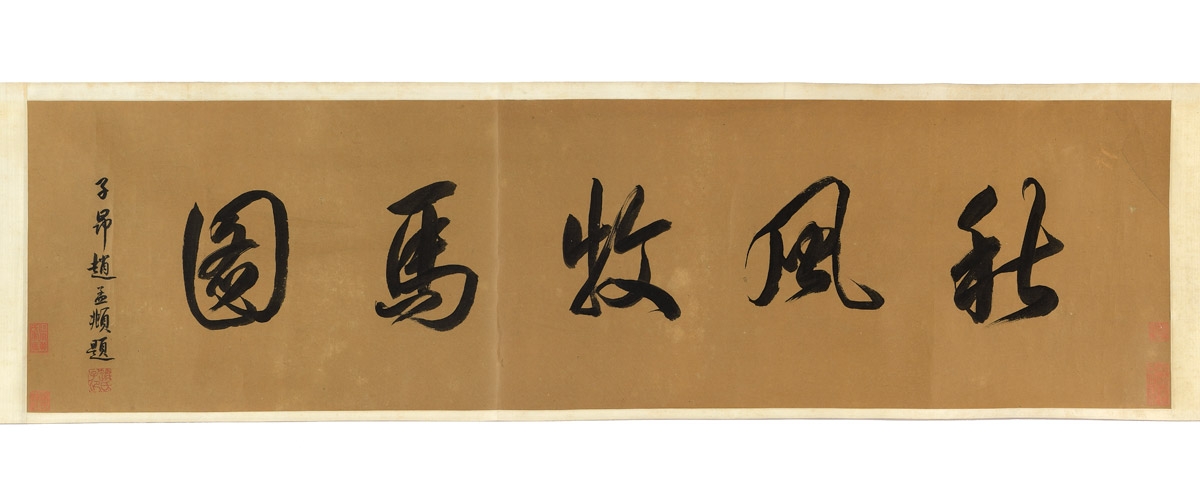 秋風牧馬圖
子昂趙孟頫題